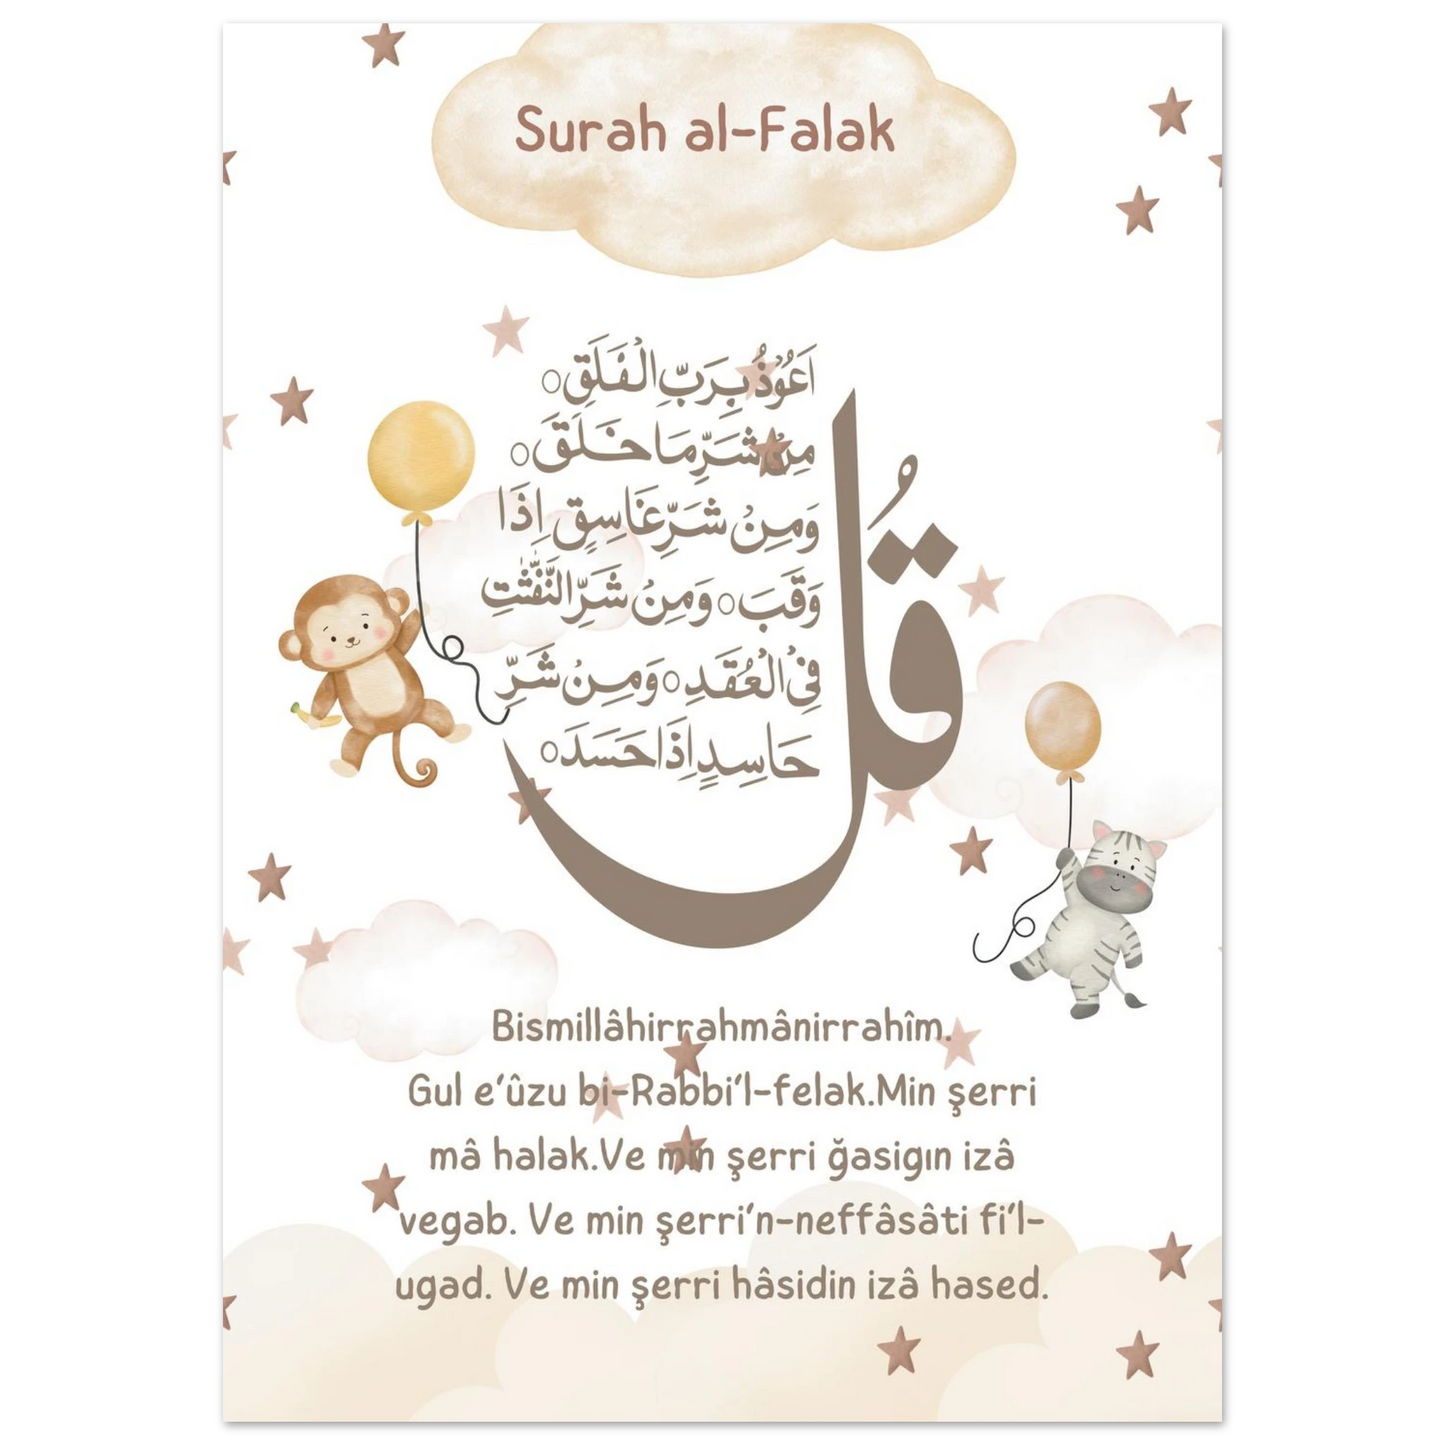 Surah al-Falak
قُل
اَعُوْذُ بِرَبِّ الْفَلَقِ○
مِنْ شَرِّ مَا خَلَقَ○
وَمِنْ شَرِّ غَاسِقٍ اِذَا
وَقَبَ○ وَمِنْ شَرِّ النَّفّٰثٰتِ
فِی الْعُقَدِ○ وَمِنْ شَرِّ
حَاسِدٍ اِذَا حَسَدَ○
Bismillâhirrahmânirrahîm.
Gul e'ûzu bi-Rabbi'l-felak.Min şerri
mâ halak.Ve min şerri ğasigın izâ
vegab. Ve min şerri'n-neffâsâti fi'l-
ugad. Ve min şerri hâsidin izâ hased.